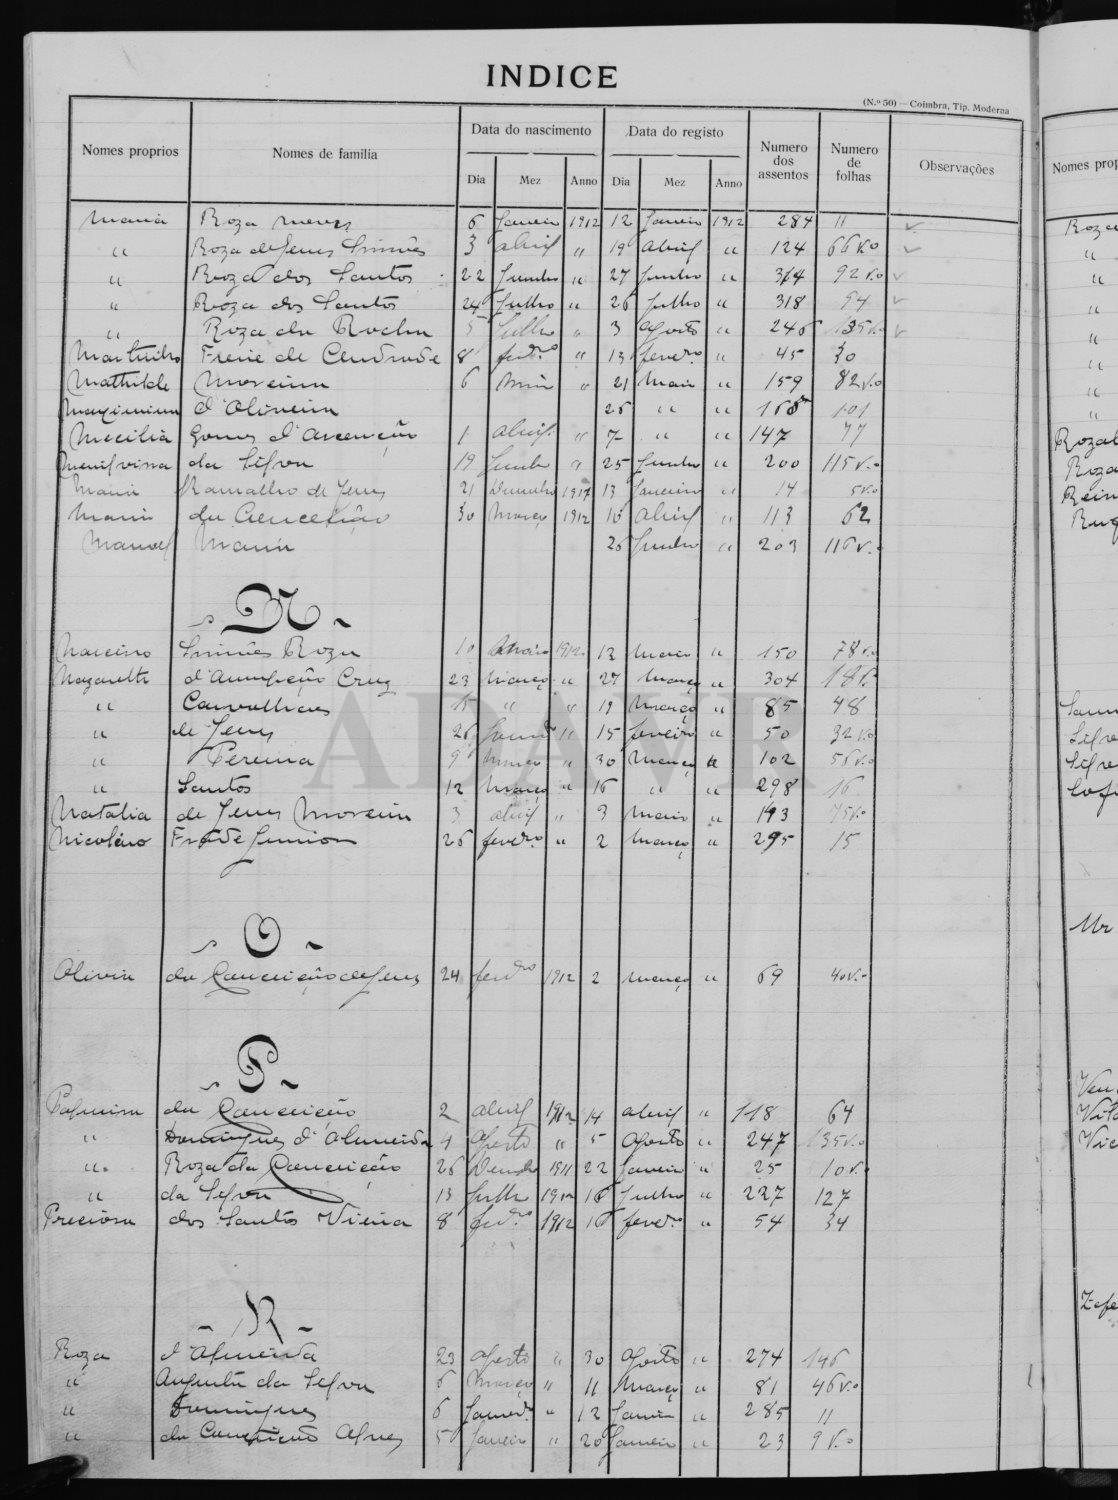 INDICE
(N.º 50) — Coimbra, Tip. Moderna
Nomes proprios Nomes de familia Data do nascimento Data do registo Numero dos assentos Numero de folhas Observações
Dia Mez Anno Dia Mez Anno
Maria Roza Neves 6 Janeiro 1912 12 Janeiro 1912 284 11
" Roza de Jesus Simões 3 abril " 19 abril " 124 66 v.o
" Roza dos Santos 22 Junho " 27 Junho " 364 92 v.o
" Roza dos Santos 24 Julho " 26 Julho " 318 94
" Roza da Rocha 5 Julho " 3 Agosto " 246 135 v.o
Martinho Freire de Andrade 8 fev.ro " 13 fever.o " 45 30
Mathilde Moreira 6 Maio " 21 Maio " 159 82 v.o
d'Oliveira 26 " " 168 101
Mecilia Gomes d'Ascenção 1 abril " 7 " " 147 77
da Silva 19 Junho " 25 Junho " 200 115 v.o
Maria Ramalho de Jesus 21 Dezembro 13 Janeiro " 14 5 v.o
Maria da Conceição 30 Março 1912 10 abril " 113 62
Manoel Maria 26 Junho " 203 116 v.o
N
Narciso Simões Roza 10 Maio 1912 13 Maio " 150 78 v.o
Nazareth d'Assumpção Cruz 23 Março " 27 Março " 304 18
" Carvalhaes 15 " " 19 Março " 85 48
" de Jesus 26 " 15 fevereiro " 50 32 v.o
" Pereira 9 Março " 30 Março " 102 56 v.o
" Santos 12 Março " 16 " " 298 16
Natalia de Jesus Moreira 3 abril " 3 Maio " 143 75 v.o
Nicoláo Frade Junior 26 fever.o " 2 Março " 295 15
O
Olivia da Conceição de Jesus 24 fev.ro 1912 2 março " 69 40 v.o
P
Palmira da Conceição 2 abril 1912 14 abril " 118 64
" Domingues d'Almeida 4 Agosto " 5 Agosto " 247 135 v.o
" Roza da Conceição 26 Dezembro 1911 22 Janeiro " 25 10 v.o
" da Silva 13 Julho 1912 16 Julho " 227 127
Preciosa dos Santos Vieira 8 fev.ro 1912 16 fever.o " 54 34
R
Roza d'Almeida 23 Agosto " 30 Agosto " 274 146
" Augusta da Silva 6 Março " 11 Março " 81 46 v.o
" Domingues 6 Janeiro " 12 Janeiro " 285 11
" da Conceição Alves 5 Janeiro " 20 Janeiro " 23 9 v.o
ADAVR